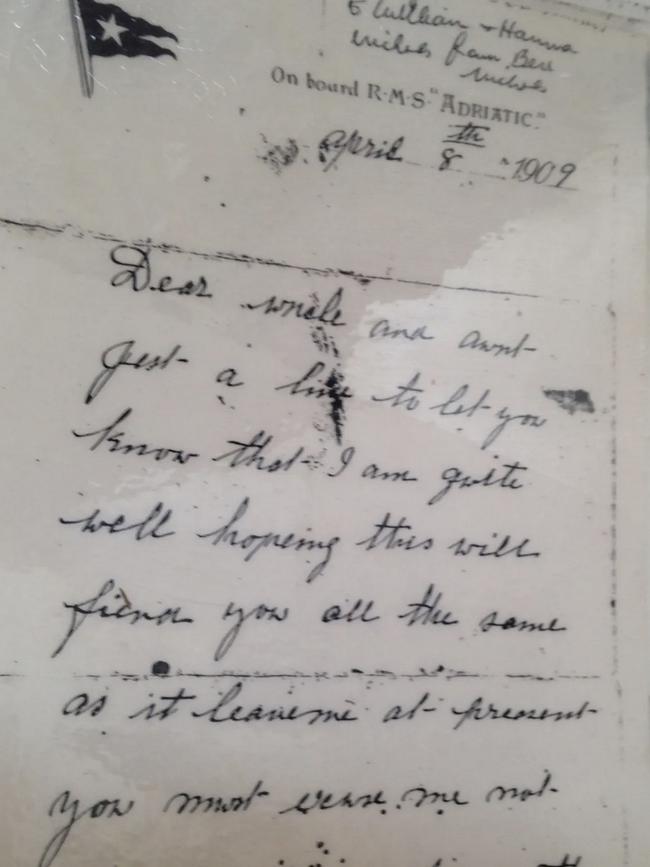 William + Hanna
from Bert
On board R·M·S· "ADRIATIC".
april 8th 1909
Dear uncle and aunt
Jest a line to let you
know that I am quite
well hopeing this will
fiend you all the same
as it leaveme at present
you must excuse me not